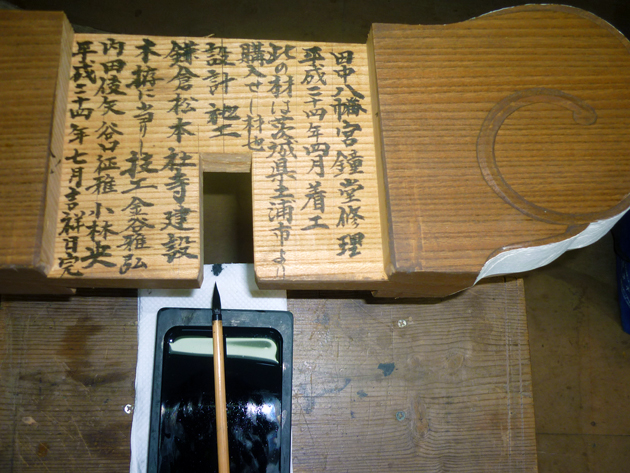 田中八幡宮鐘堂修理
平成二十四年四月着工
此の材は茨城県土浦市より
購入せし材也
設計施工
鎌倉松本社寺建設
木拵に当りし技工金谷雅弘
内田俊矢谷口征雅小林央
平成二十四年七月吉祥日完